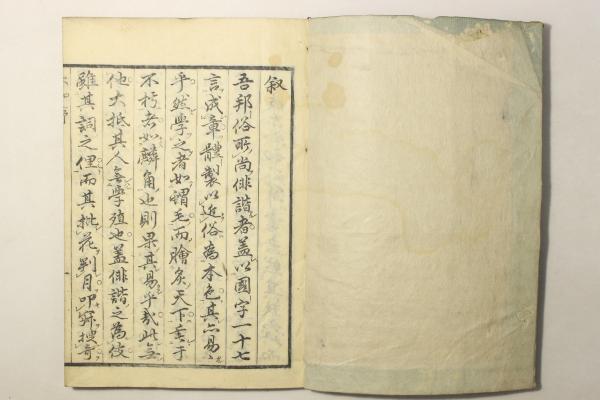 叙
吾邦俗所尚俳諧者盖以國字一十七
言成章體製以近俗為本色其亦易々
乎然學之者如蝟毛而膾炙天下垂于
不朽者如麟角也則果其易乎哉此無
他大抵其人無學殖也盖俳諧之為伎
雖其詞之俚而其批花判月叩寂搜奇